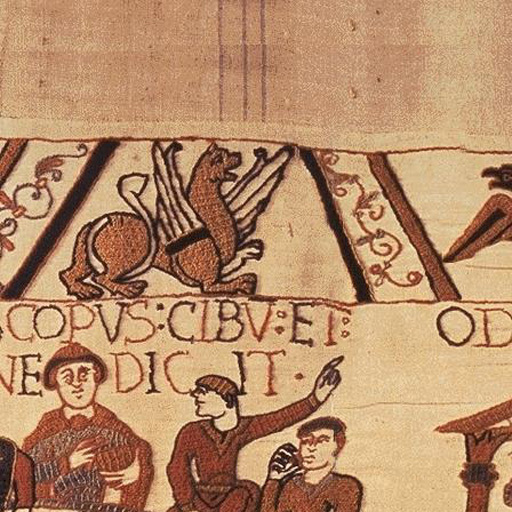 COPVS:CIBV:ET: OD
NE DIC IT.